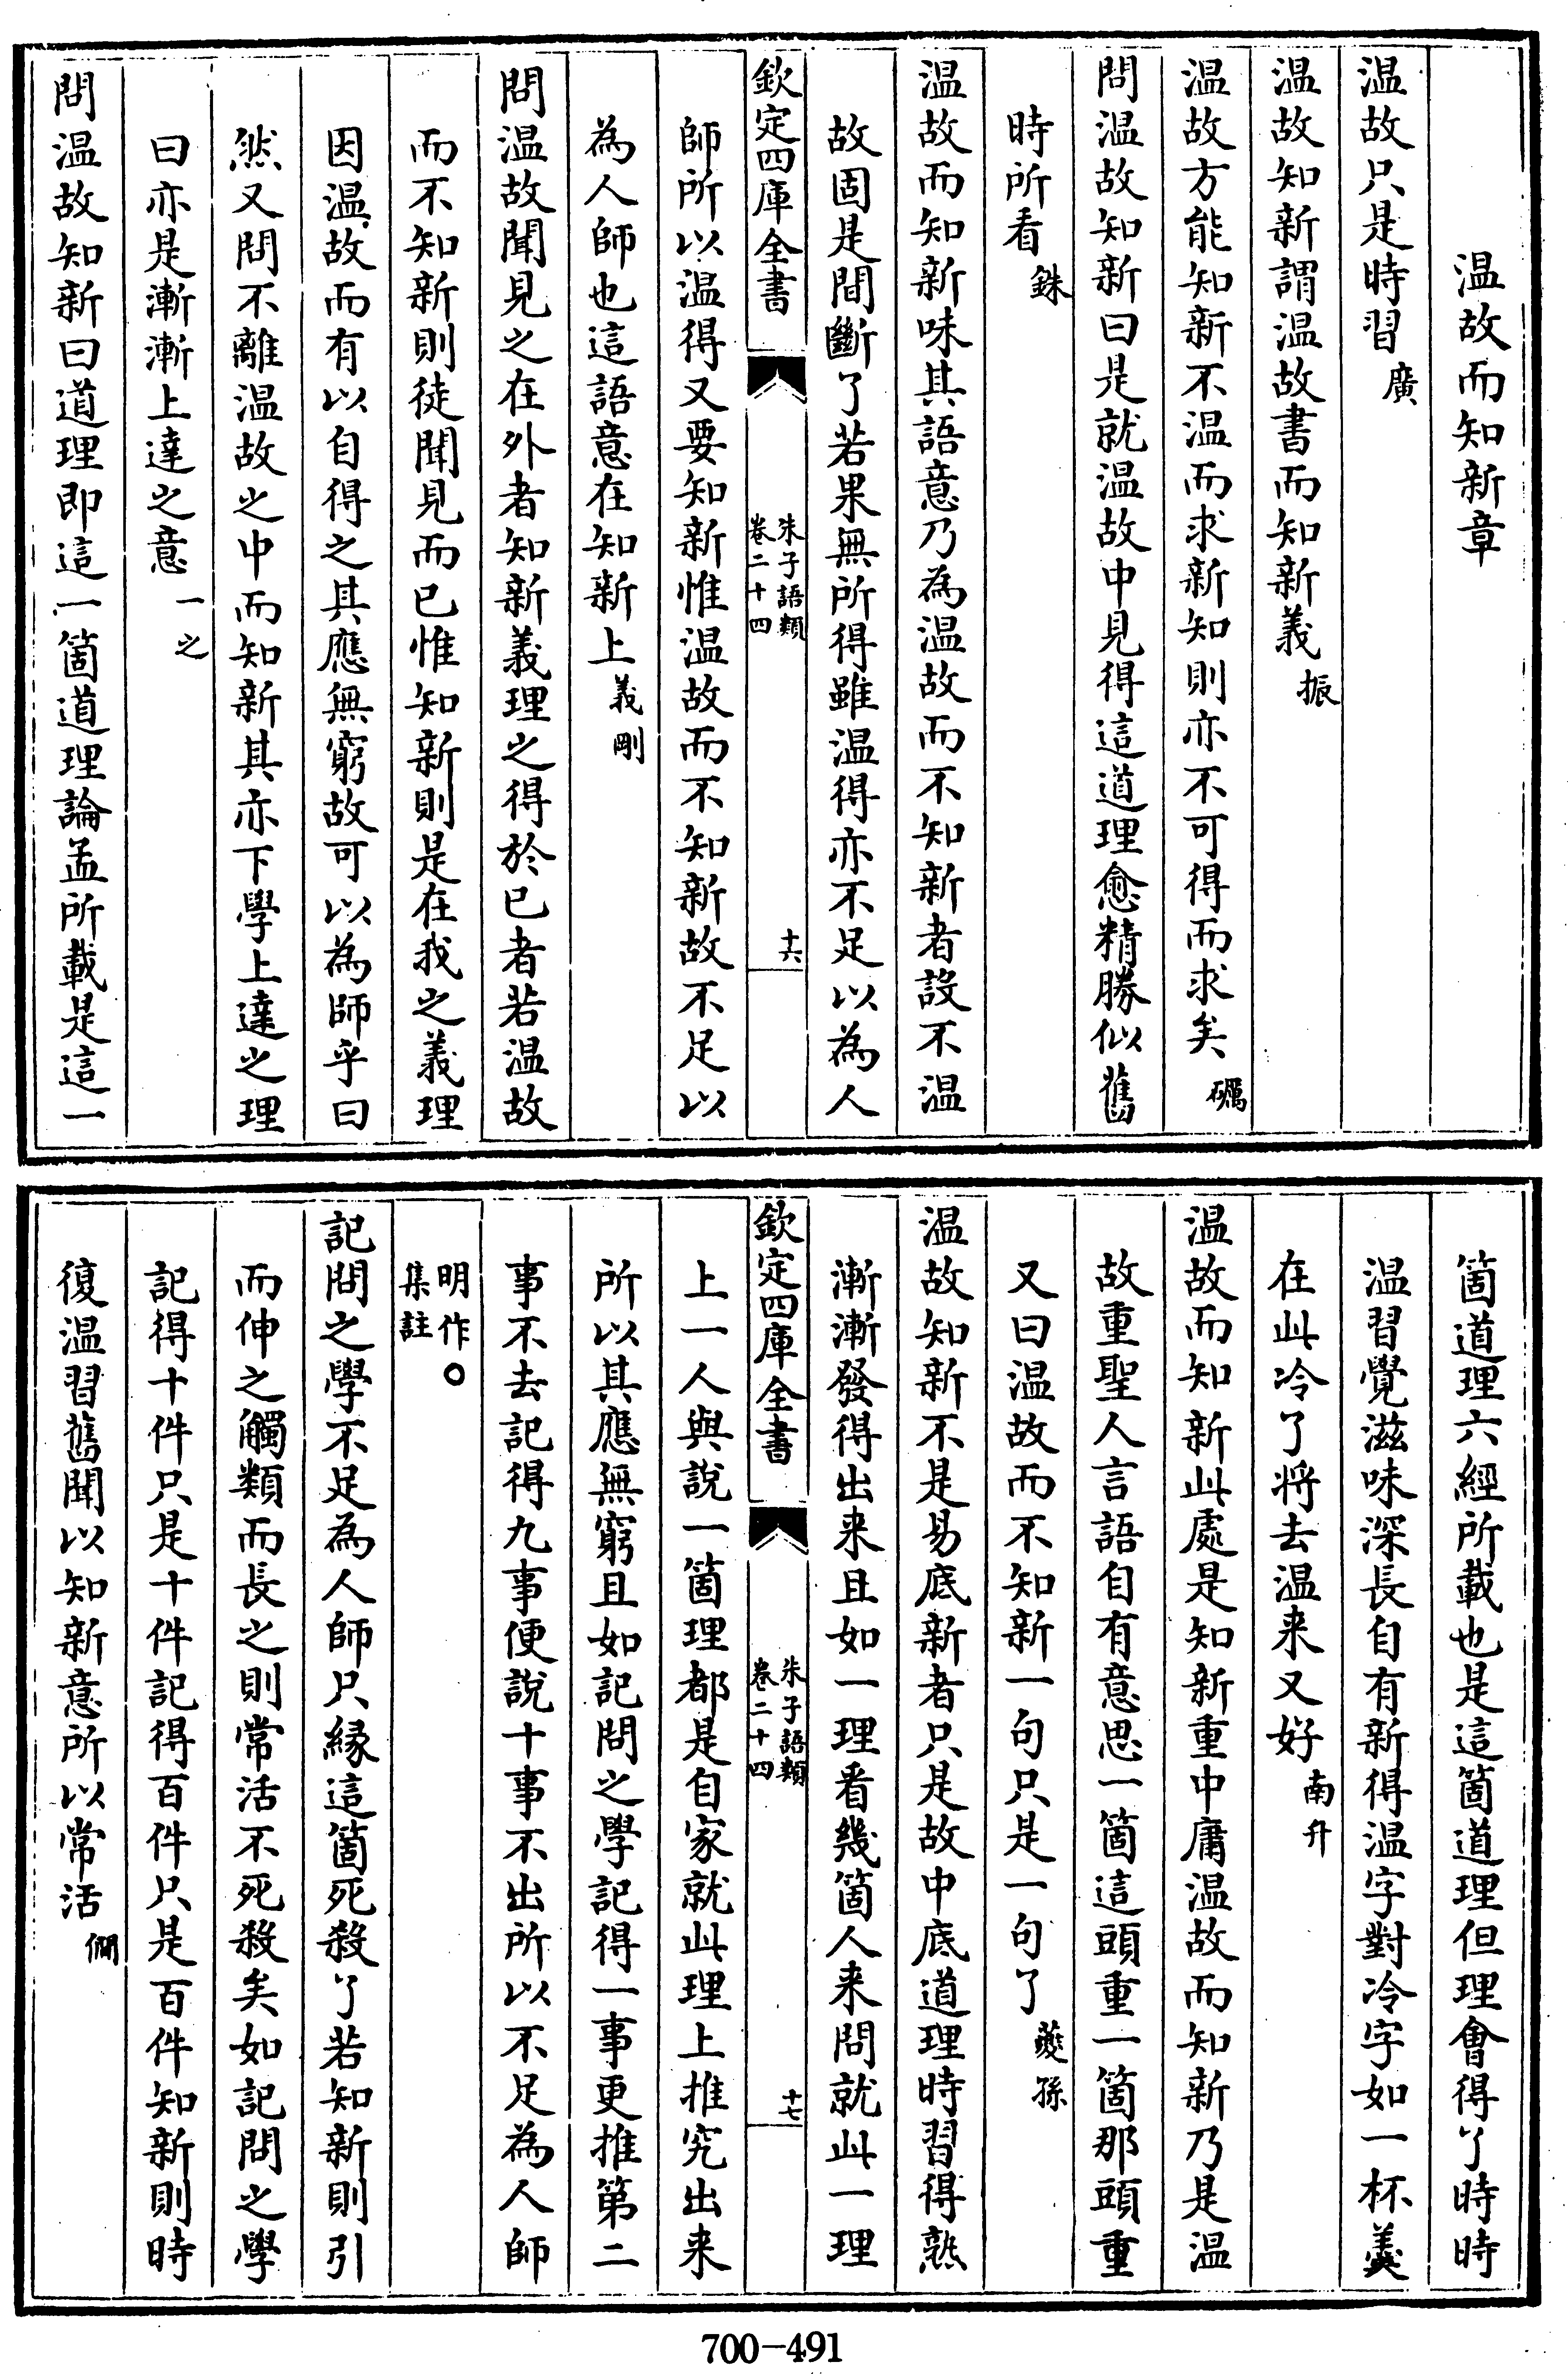 温故而知新章
温故只是時習廣
温故知新謂温故書而知新義振
温故方能知新不温而求新知則亦不可得而求矣礪
問温故知新曰是就温故中見得這道理愈精勝似舊
時所看銖
温故而知新味其語意乃為温故而不知新者設不温
故固是間斷了若果無所得雖温得亦不足以為人
欽定四庫全書
朱子語類
卷二十四
十六
師所以温得又要知新惟温故而不知新故不足以
為人師也這語意在知新上義剛
問温故聞見之在外者知新義理之得於已者若温故
而不知新則徒聞見而已惟知新則是在我之義理
因温故而有以自得之其應無窮故可以為師乎曰
然又問不離温故之中而知新其亦下學上達之理
曰亦是漸漸上達之意一之
問温故知新曰道理即這一箇道理論孟所載是這一
箇道理六經所載也是這箇道理但理會得了時時
温習覺滋味深長自有新得温字對冷字如一杯羮
在此冷了將去温来又好南升
温故而知新此處是知新重中庸温故而知新乃是温
故重聖人言語自有意思一箇這頭重一箇那頭重
又曰温故而不知新一句只是一句了夔孫
温故知新不是易底新者只是故中底道理時習得熟
漸漸發得出来且如一理看幾箇人来問就此一理
欽定四庫全書
朱子語類
卷二十四
十七
上一人與說一箇理都是自家就此理上推究出来
所以其應無窮且如記問之學記得一事更推第二
事不去記得九事便說十事不出所以不足為人師
明作○
集註
記問之學不足為人師只緣這箇死殺了若知新則引
而伸之觸類而長之則常活不死殺矣如記問之學
記得十件只是十件記得百件只是百件知新則時
復温習舊聞以知新意所以常活僩
700-491